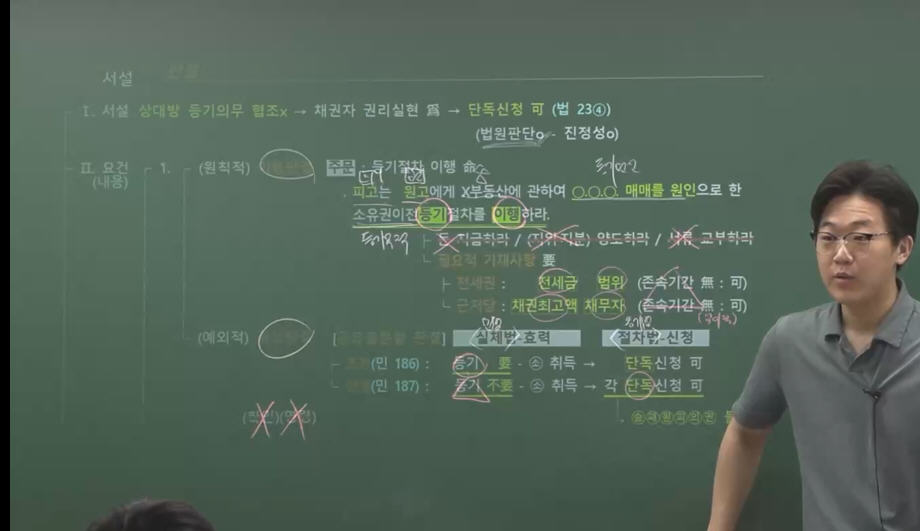 서설 판결
I. 서설 상대방 등기의무 협조x → 채권자 권리실현 爲 → 단독신청 可 (법 23④)
(법원판단o - 진정성o)
II. 요건 1. (원칙적) 주문 : 등기절차 이행 命
(내용)
피고는 원고에게 X부동산에 관하여 O.O.O. 매매를 원인으로 한
소유권이전등기절차를 이행하라.
돈 지급하라 / (지위·지분) 양도하라 / 서류 교부하라
필요적 기재사항 要
전세권 : 전세금 범위 (존속기간 無 : 可)
근저당 : 채권최고액 채무자 (존속기간 無 : 可)
(예외적) [공유물분할 판결] 실체법-효력 절차법-신청
(민 186) : 등기 要 - 취득 → 단독신청 可
(민 187) : 등기 不要 - 취득 → 각 단독신청 可